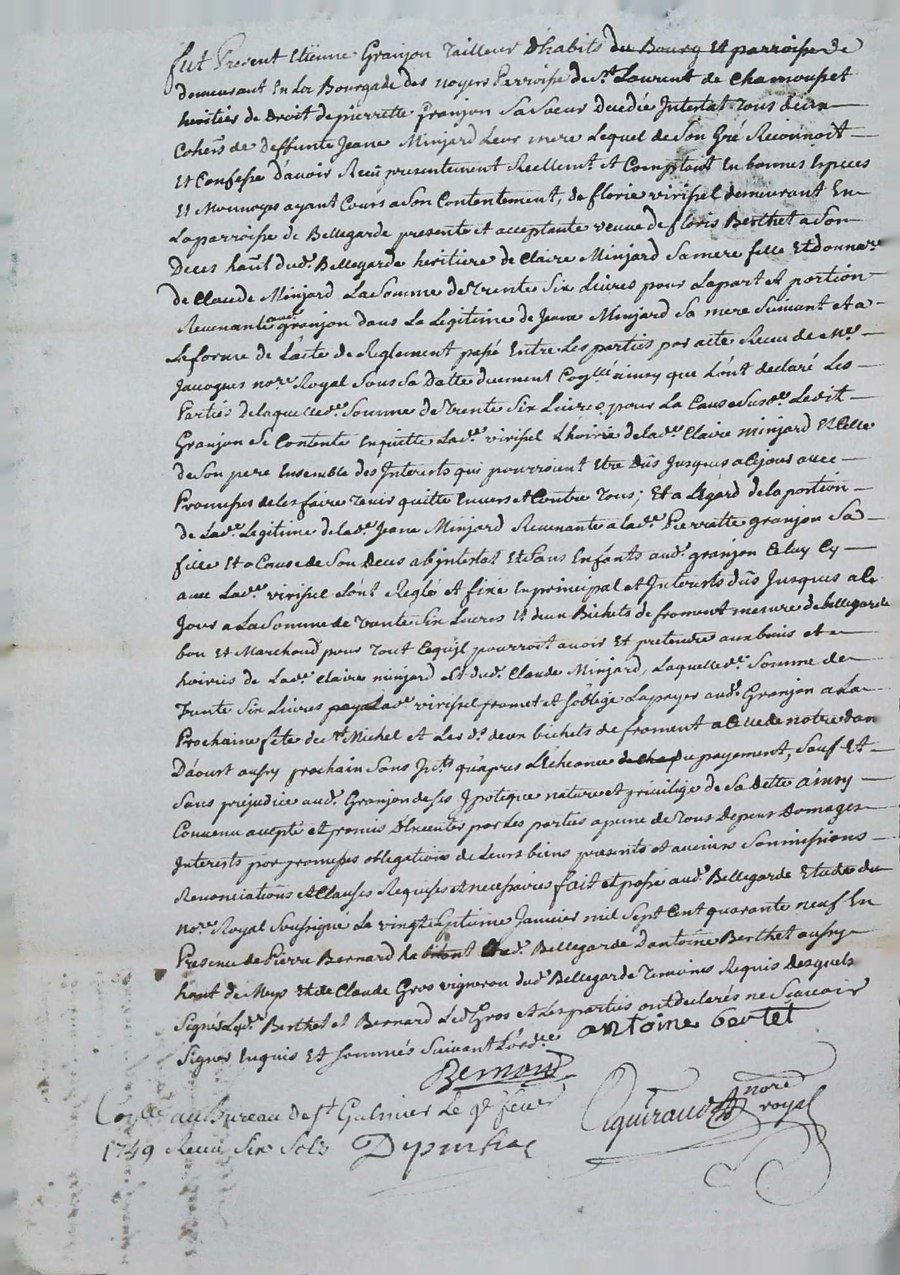 fut Present Etienne Granjon Tailleur d'habits du Bourg Et parroisse de
demeurant En La Bourgade des noyers Parroisse de St. Laurent de Chamousset
heritier de Droit de pierrette Granjon Sa Soeur decedée Intestat Tous deux
Cohers de deffunte Jeane Minjard Leur mere Lequel de Son Gré Reconnoit
Et Confesse d'avoir Receu presentement Reellement Et Comptant En bonnes Especes
Et Monnoyes ayant Cours a Son Contentement, de florie virissel demeurant En
La parroisse de Bellegarde presente et acceptante veuve de floris Berthet a Son
Deces haut dud. Bellegarde heritiere de Claire Minjard Sa mere fille Et donnare
de Claude Minjard La Somme de Trente Six Livres pour La part et portion
Revenante aud granjon dans La Legitime de Jeane Minjard Sa mere Suivant et a
Le forme de L'acte de Reglement passé Entre Les parties par acte Receu de Me.
Javogues nore. Royal Sous Sa datte duement Conlle ainsy que L'ont declaré Les
Parties de laquelle de. Somme de Trente Six Livres pour La Cause Susde. Ledit
Granjon Se Contente En quitte Lade. virissel L'hoirie de lade. Claire minjard Et Celle
de Son pere Ensemble des Interests qui pourroient Etre Dûs Jusques a Ce jour avec
Promesses de les faire Tenir quitte Envers et Contre Tous; Et a L'Egard de la portion
de Lade. Legitime de lade. Jeane Minjard Revenante a lade. Pierrette granjon Sa
fille Et a Cause de Son Deces abjntestat Et Sans Enfants aud. granjon Celuy Cy
avec Lade. virissel L'ont Reglé et fixé En principal et Interests dûs Jusques a Ce
Jour a La Somme de Trente Six Livres Et deux Bichets de froment mesure de bellegarde
bon Et Marchand pour Tout Ce qu'il pourroit avoir Et pretendre aux biens et
hoiries de Lade. Claire minjard Et dud. Claude Minjard, Laquelle de. Somme de
Trente Six Livres Lade. virissel promet et s'oblige La payer aud. Granjon a La
Prochaine fête de St Michel et Les ds. deux bichets de froment a Celle de notre dam
D'aoust aussy prochain Sans Jnts. qu'apres L'Echeance de Chaque payement, Sauf Et
Sans prejudice aud. Granjon de Ses Jpoteque nature et privilege de Sa dette ainsy
Convenu accepté et promis d'Executer par Les parties a peine de Tous Depens Domages
Interests par promesses obligations de Leurs biens presents et avenirs Soumissions
Renonciations et Clauses Requises et necessaires fait et passé aud. Bellegarde Etude du
nore. Royal Soussigné Le vingt Septieme Janvier mil Sept Cent quarante neuf En
Presence de Pierre Bernard habitant aud. Bellegarde d'antoine Berthet aussy
haut de Meys Et de Claude Gros vigneron dud. Bellegarde Temoins Requis Desquels
Signés Lesd. Berthet et Bernard Led. Gros et Les parties ont declarés ne Scavoir
Signer Enquis Et Sommés Suivant L'ordce. antoine bertet
Bernard
Conlle au Bureau de St Galmier Le 9e fevr
1749 Receu Six Sols
nore royal